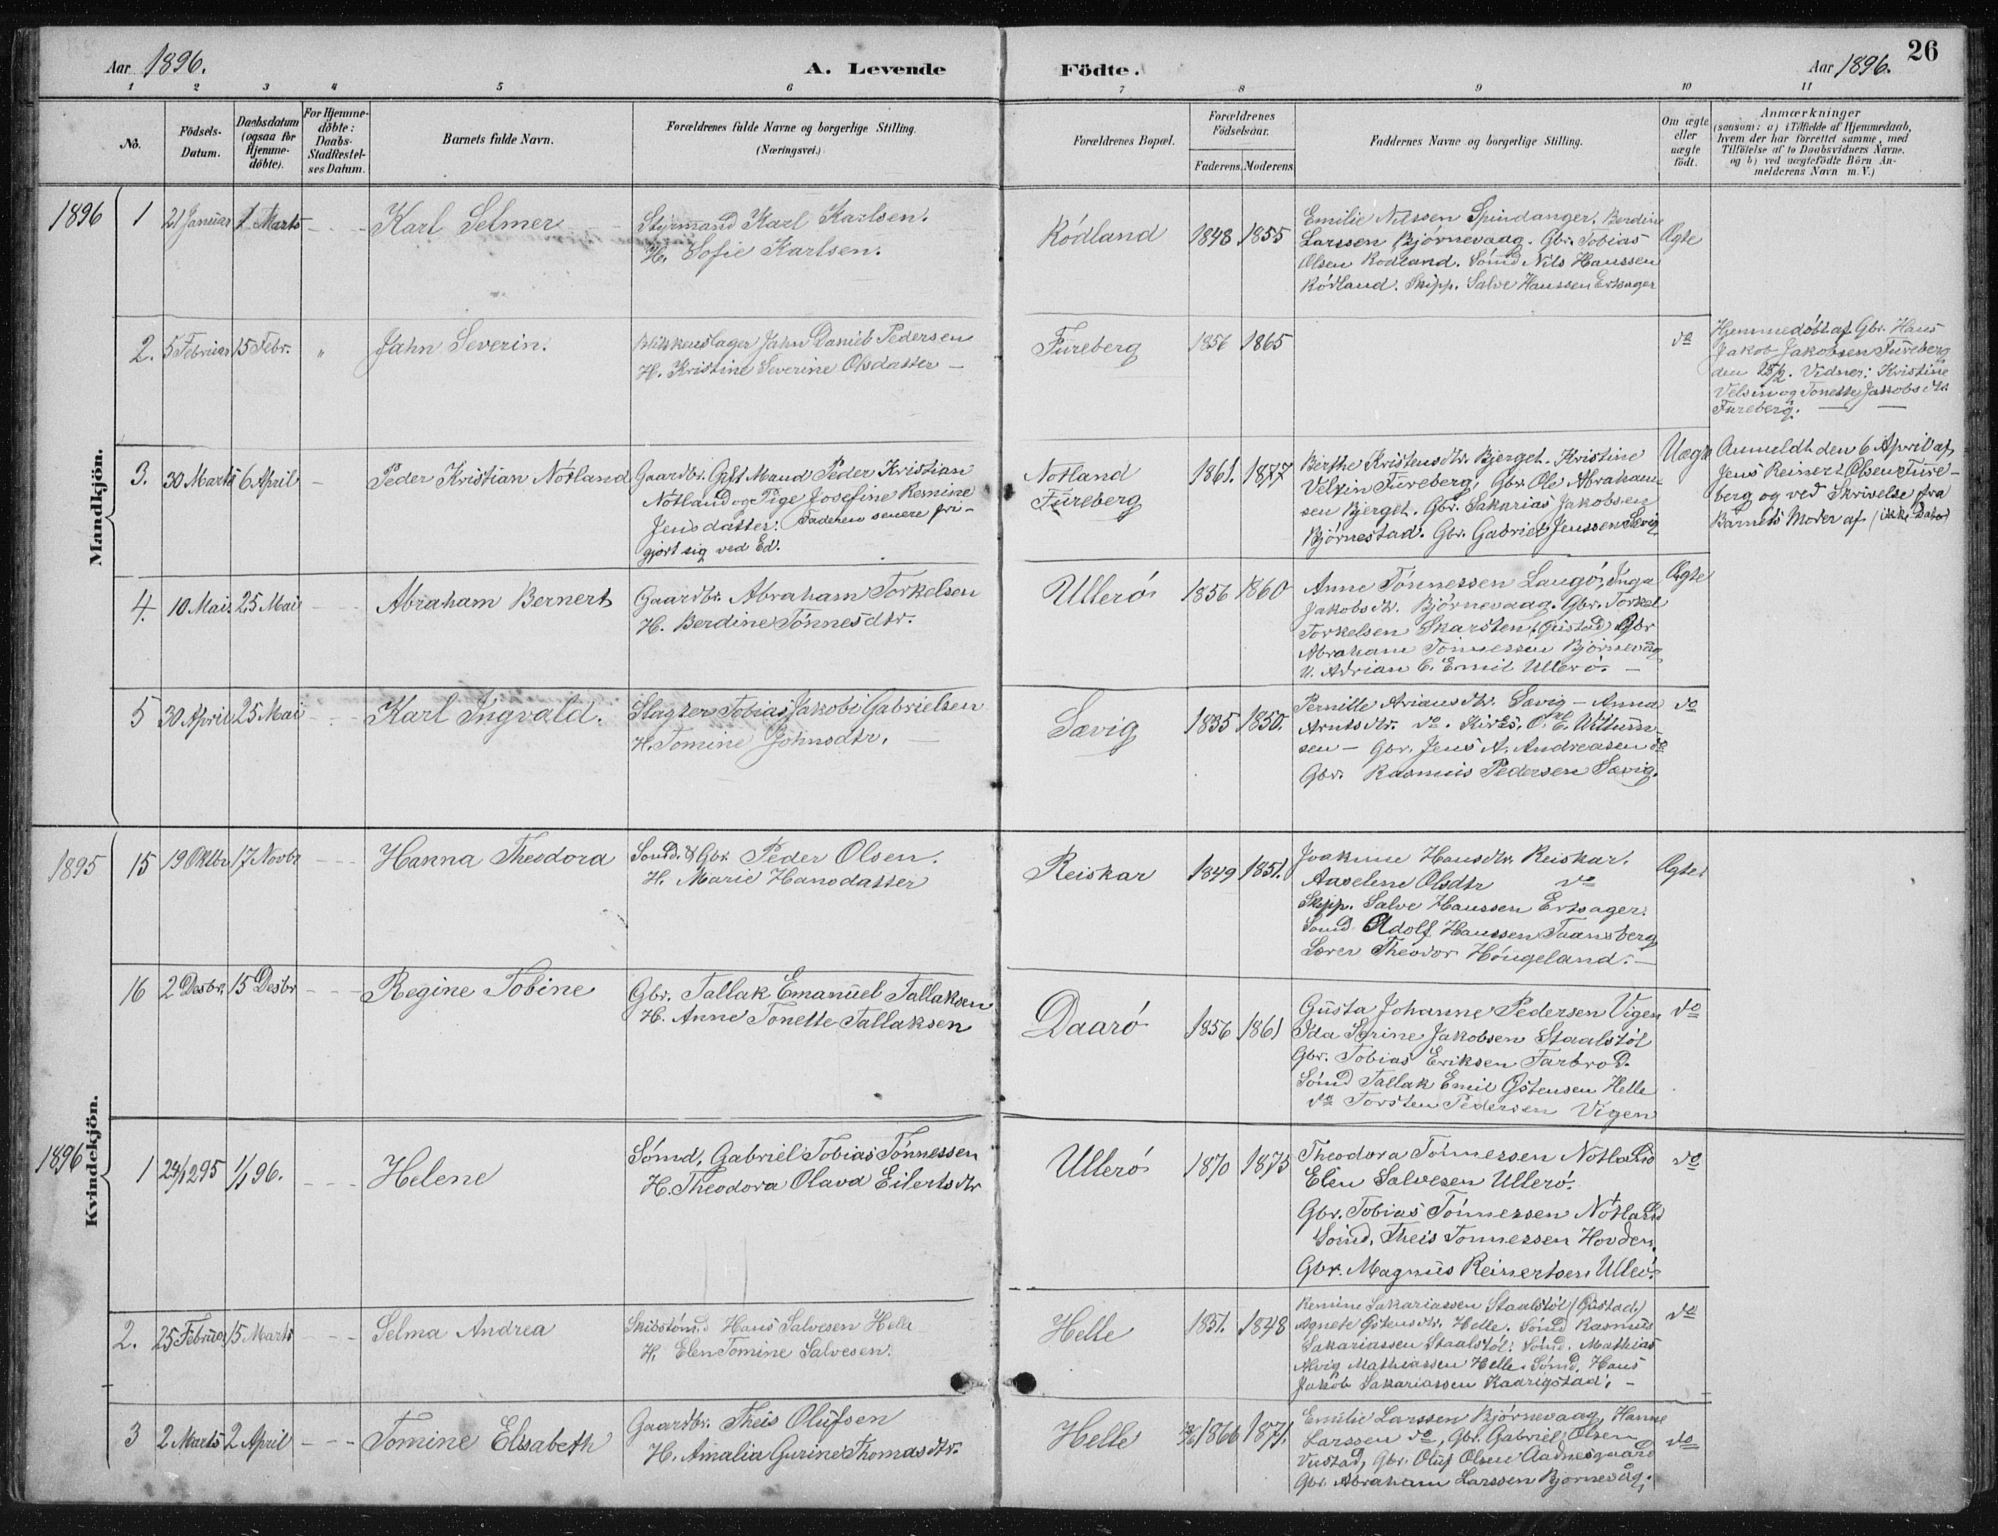 26
Aar 1896.
A. Levende Födte.
Aar 1896.
1 2 3 4 5 6 7 8 9 10 11
No.
Födsels-Datum.
Daabsdatum (ogsaa for Hjemme-döbte).
For Hjemme-döbte: Daabs-Stadfestel-ses Datum.
Barnets fulde Navn.
Forældrenes fulde Navne og borgerlige Stilling.
(Næringsvei.)
Forældrenes Bopæl.
Forældrenes Födselsaar.
Faderens. Moderens.
Faddernes Navne og borgerlige Stilling.
Om ægte eller uægte födt.
Anmærkninger
(saasom: a) i Tilfælde af Hjemmedaab, hvem der har forrettet samme, med Tilföielse af to Daabsvidners Navne, og b) ved uægtefödte Börn An-melderens Navn m. V.)
Mandkjön.
1896 1 21 Januar 1 Marts Karl Selmer
Styrmand Karl Karlsen.
H. Sofie Karlsen.
Ródland 1848 1855
Emilie Nilssen Spindanger. Berdine
Larssen Bjørnevaag. Gbr. Tobias
Olsen Rodland. Sómd Nils Hanssen
Ródland. Skipp. Salve Hanssen Ertsager
Ægte
2. 5 Februar 15 Febr. " Jahn Severin.
Jahn Daniel Pedersen
H. Kristine Severine Olsdatter —
Fureberg 1856 1865
do
Hjemmedöbt af Gbr. Hans
Jakob Jakobsen Fureberg
den 15/2. Vidner: Kristine
og Tonette Jakobsdtr.
Fureberg.
3. 30 Marts 6 April Peder Kristian Nótland
Gaardbr. Gift Mand Peder Kristian
Nótland og Pige Josefine Remine
Jensdatter. Faderen senere fri-
gjort sig ved Ed.
Nótland
Fureberg
1861. 1877
Berthe Kristensdtr. Bjerget. Kristine
Fureberg, Gbr. Ole Abraham-
sen Bjerget. Gbr. Sakarias Jakobsen
Bjørnestad. Gbr. Gabriel Jenssen Sævig
Uægte
Anmeldt den 6 April af
Jens Reinert Olsen Fure-
berg og ved Skrivelse fra
Barnets Moder af (ikke Dato)
4. 10 Mais 25 Mai Abraham Bernert
Gaardbr. Abraham Torkelsen
H. Berdine Tönnesdtr.
Ulleró 1856 1860
Anne Tónnessen Langó, Inga
Jakobsdtr. Bjórnevaag. Gbr. Torkel
Torkelsen Skarsten (Gustad) Gbr
Abraham Tónnessen Bjórnevåg
U. Adrian E. Emil Ulleró. —
Ægte
5 30 April 25 Mai Karl Ingvald.
Slagter Tobias Jakobi Gabrielsen
H. Tomine Johnsdtr. —
Sævig 1835 1850.
Pernille Ariansdtr. Sævig — Anna
Arntsdtr. do.
sen — Gbr. Jens A. Andreasen do
Gbr. Rasmus Pedersen Sævig.
do
Kvindekjön.
1895 15 19 Oktbr 17 Novbr Hanna Theodora
Sómd. & Gbr. Peder Olsen.
H. Marie Hansdatter
Reiskar 1849 1851.
Joakime Hansdtr. Reiskar.
Aaselene Olsdtr do
Skipp. Salve Hanssen Ertsager.
Sómd Adolf Hanssen Taansberg
Sører Theodor Hóugeland. —
Ægte
16 2 Desbr. 15 Desbr Regine Tobine
Gbr. Tallak Emanuel Tallaksen
H. Anne Tonette Tallaksen
Daaró 1856 1861
Gusta Johanne Pedersen Vigen
Ida Serine Jakobsen Staalstól
Gbr. Tobias Eriksen Farbrod.
Sómd Tallak Emil Ostensen Helle
do Torsten Pedersen Vigen
do
1896 1 29/12 95 1/1 96. Helene
Sómd, Gabriel Tobias Tónnessen
H. Theodora Olava Eilertsdtr
Ulleró 1870 1875
Theodora Tónnessen Nótland
Elen Salvesen Ulleró.
Gbr. Tobias Tónnessen Nótland
Sómd. Theis Tonnessen Hovden.
Gbr. Magnus Reinertsen Ulleó.
do
2. 25 Februar 15 Marts Selma Andrea
Skibstómd Hans Salvesen Helle
H. Elen Tomine Salvesen.
Helle 1851. 1848
Remine Sakariassen Staalstól (Gustad)
Agnete Ostensdtr. Helle. Sómd Rasmus
Sakariassen Staalstól. Sómd. Mathias
Alvig Mathiassen Helle. Sómd. Hans
Jakob Sakariassen Kaarigstad. —
do
3 2 Marts 2 April Tomine Elisabeth
Gaardbr. Theis Olufsen
H. Amalia Gurine Thomasdtr.
Helle 1866 1871.
Emilie Larssen Bjórnevaag, Hanne
Larssen do, Gbr. Gabriel Olsen
Gbr. Oluf Olsen Aadnesgaard
Gbr. Abraham Larssen Bjornevåg.
do